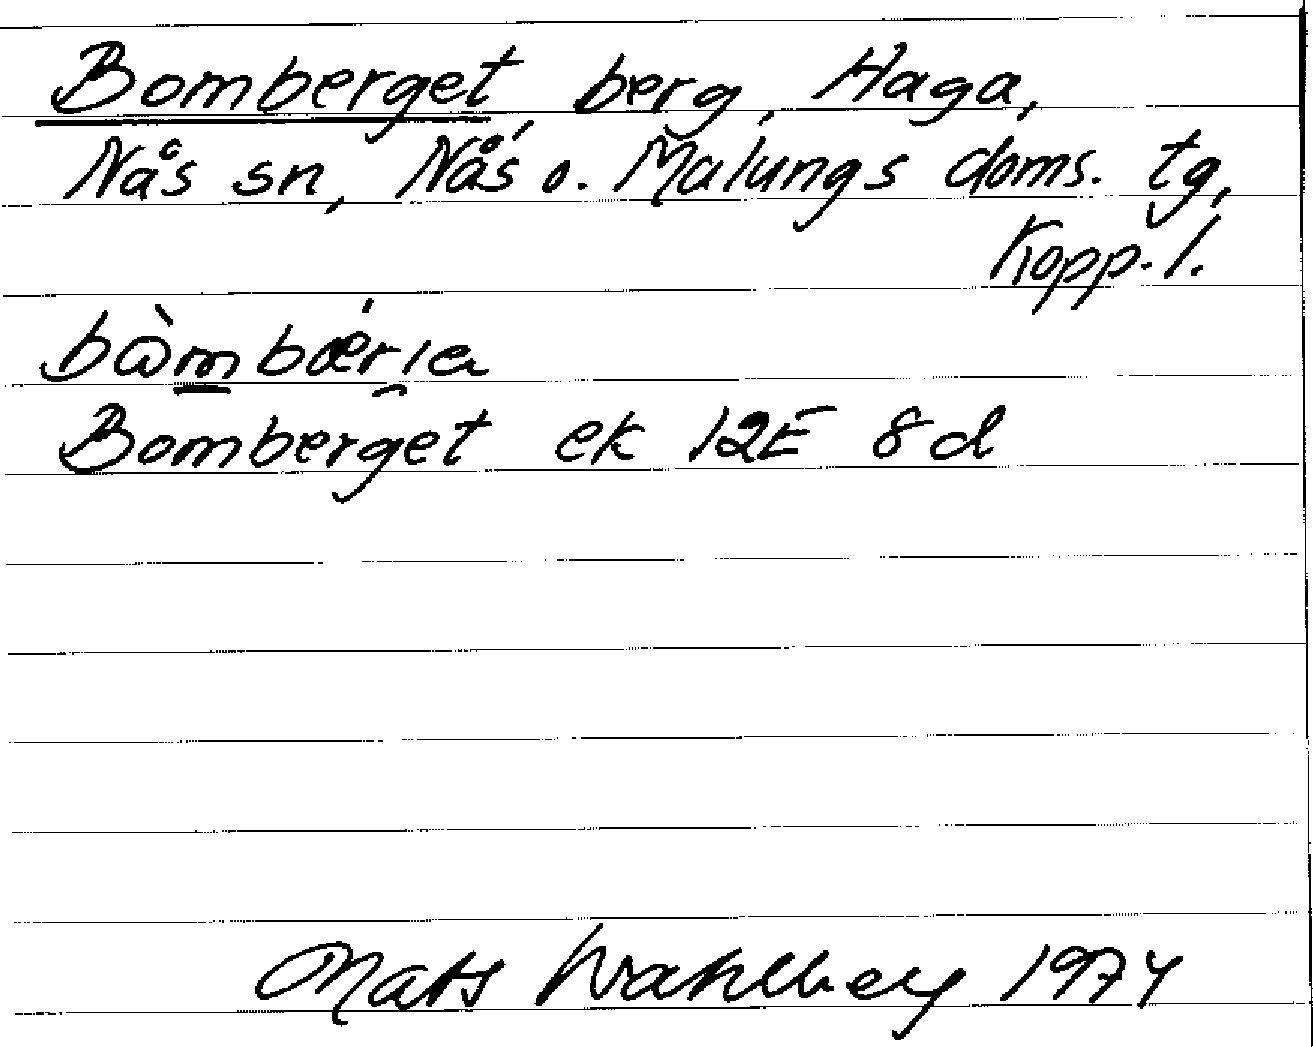 Bomberget, berg, Haga,
Nås sn, Nås o. Malungs doms. tg,
Kopp. l.
Bomberget ek 12E 8d
Mats Wahlberg 1974